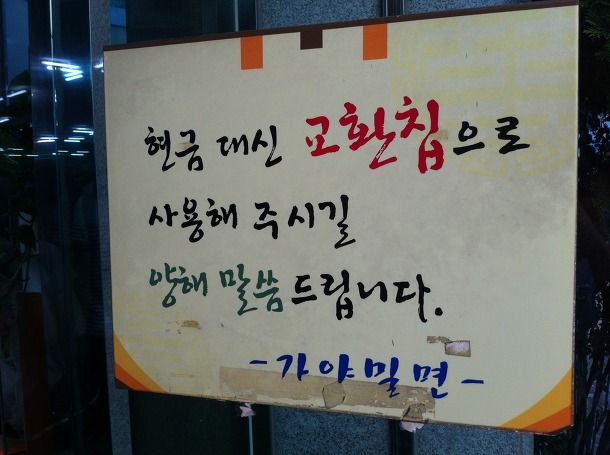 현금 대신 교환칩으로
사용해 주시길
양해 말씀드립니다.
- 가야밀면 -